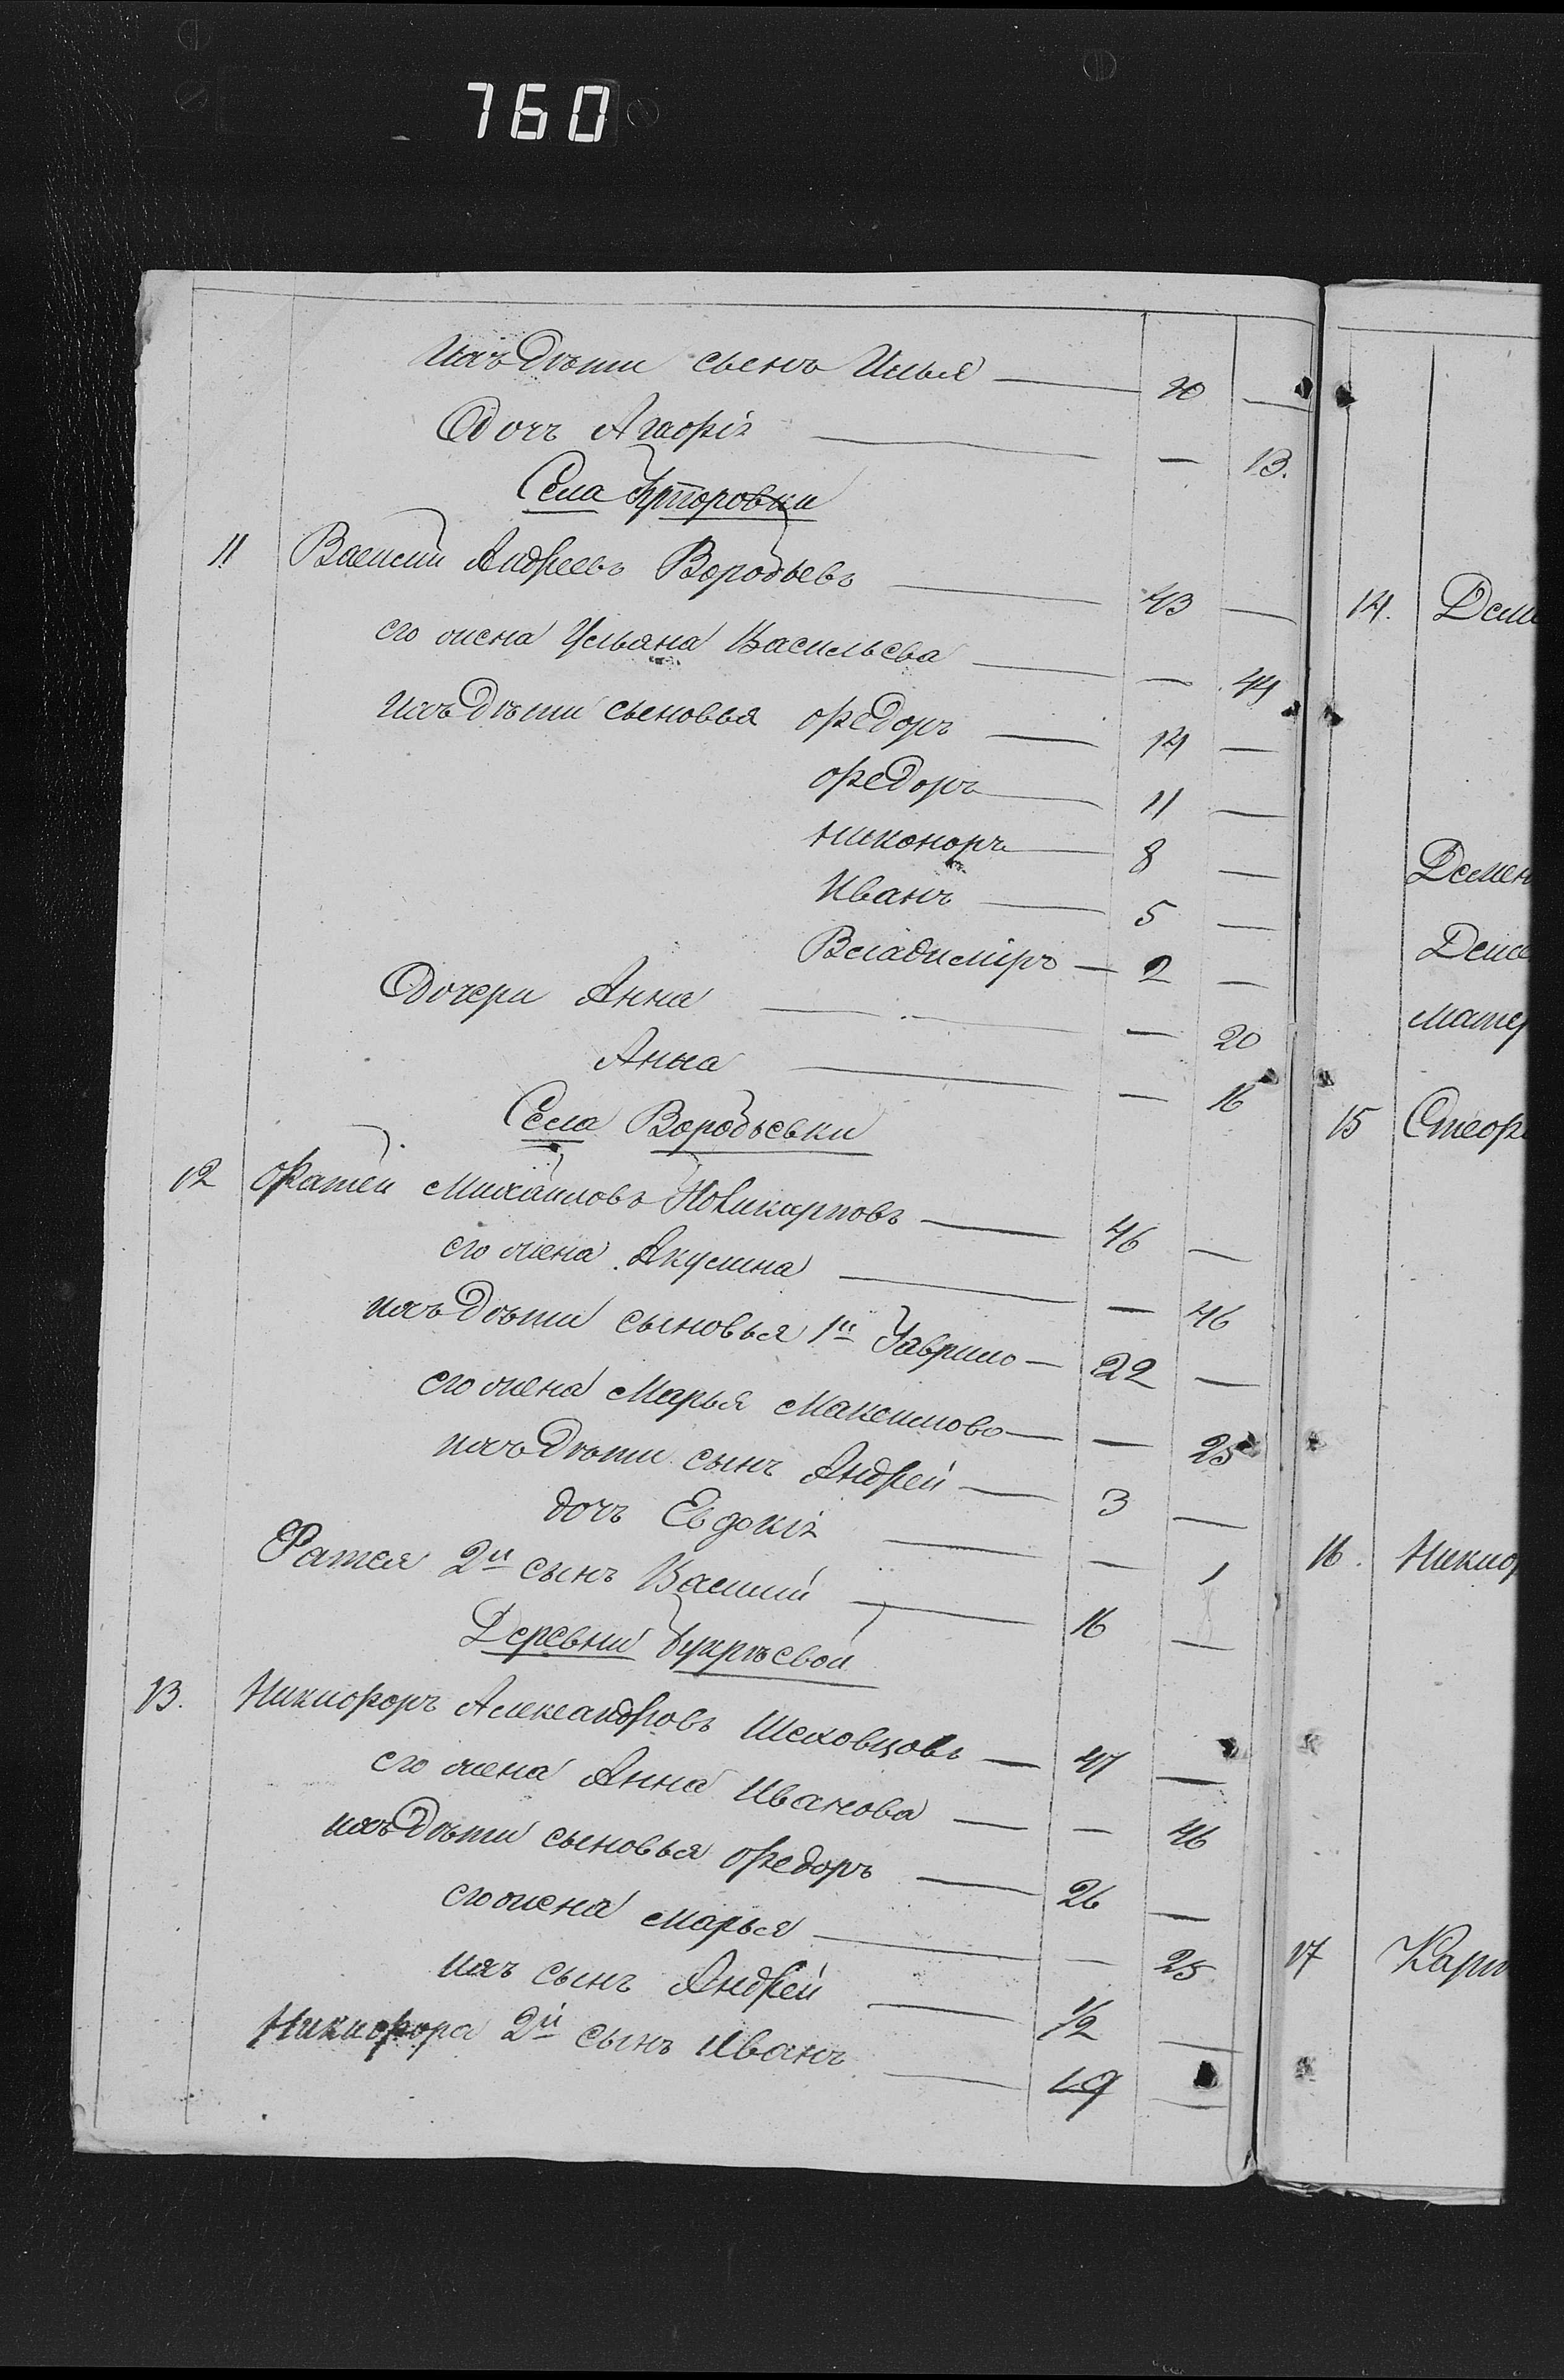 760
Ихъ дѣти сынъ Илья — 20 —
Дочь — 13.
Села
11 Василий Андреевъ Воробьевъ — 43 —
его жена Ульяна Васильева — — 44
Ихъ дѣти сыновья Федоръ — 14 —
Федоръ — 11 —
Никоноръ — 8 —
Иванъ — 5 —
Владиміръ — 2 —
Дочери Анна — — 20
Анна — — 16
Села Воробьевки
12 Фатей Михайловъ Поликарповъ — 46 —
его жена Акулина — — 46
ихъ дѣти сыновья 1й Гаврило — 22 —
его жена Марья Максимова — — 25
ихъ дѣти сынъ Андрей — 3 —
дочь Евдокія — — 1
Фатея 2й сынъ Василий — 16 —
Деревни
13. Никифоръ Александровъ Шеховцовъ — 47 —
его жена Анна Иванова — — 46
ихъ дѣти сыновья Федоръ — 26 —
его жена Марья — — 25
ихъ сынъ Андрей — 1/2 —
Никифора 2й сынъ Иванъ — 19 —
14.
15
16.
17